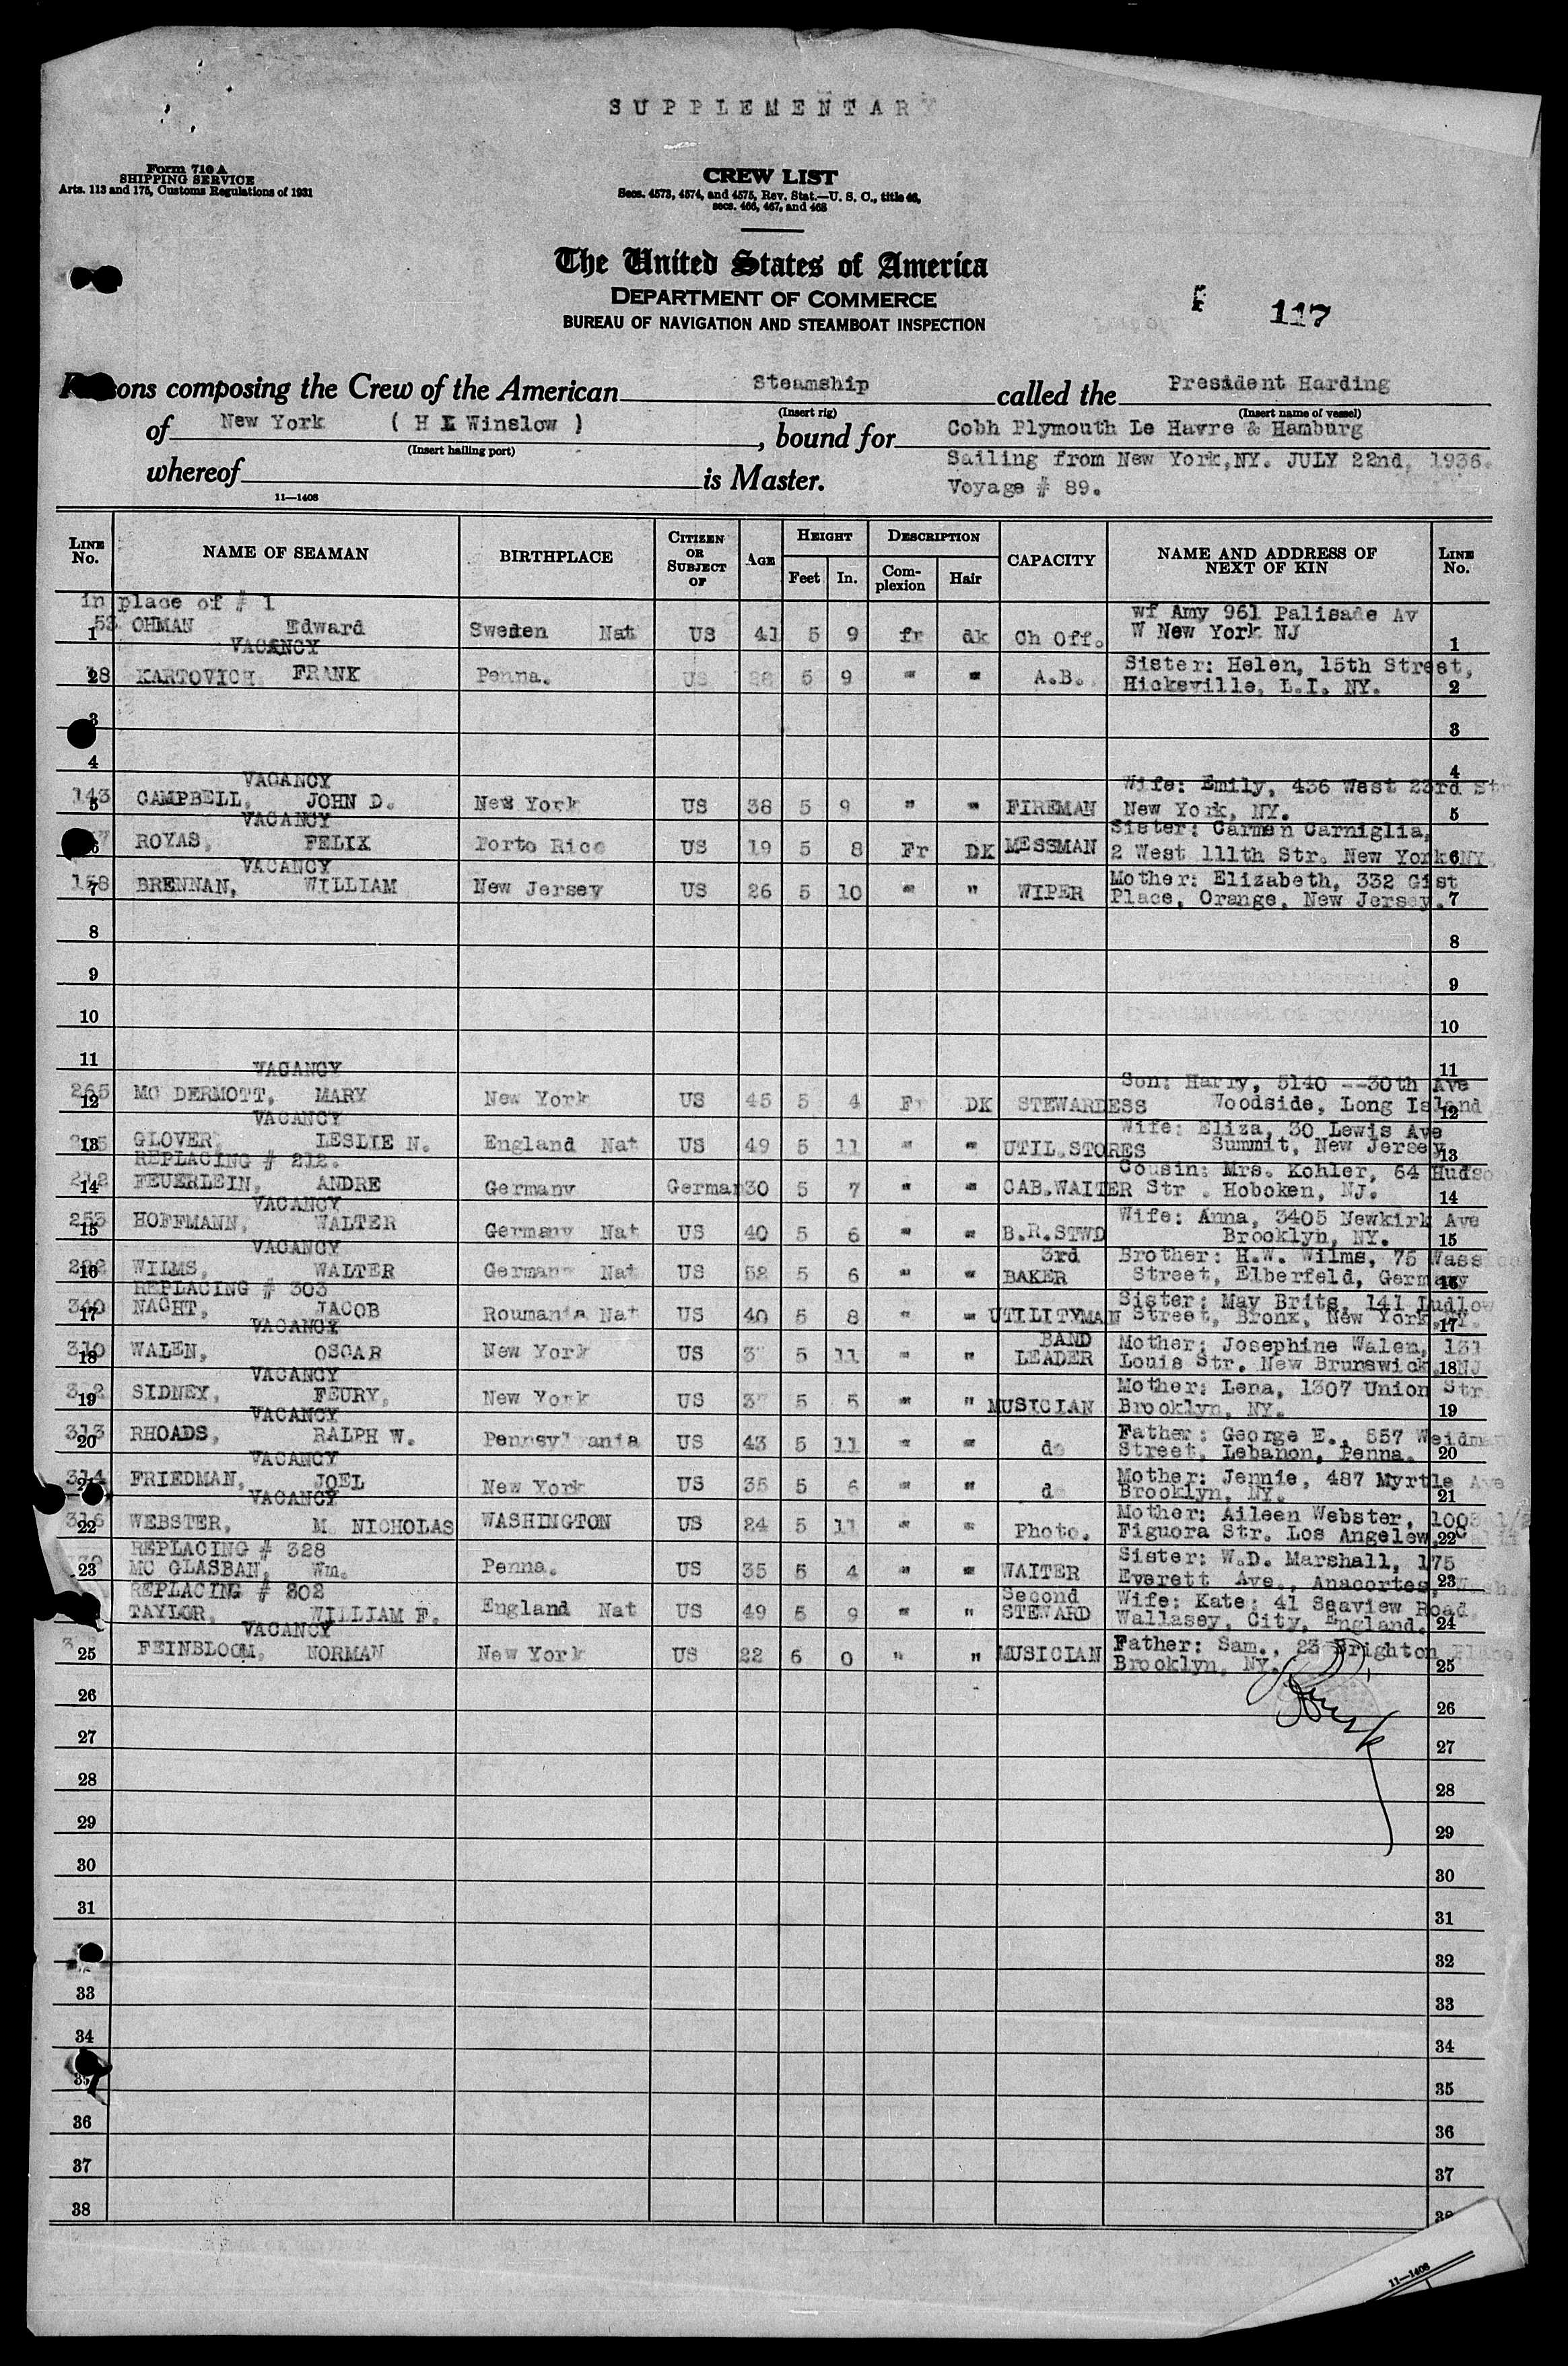 SUPPLEMENTARY
Form 710 A
SHIPPING SERVICE
Arts. 113 and 175, Customs Regulations of 1931
CREW LIST
Secs. 4573, 4574, and 4575, Rev. Stat.—U. S. C., title 46,
secs. 466, 467, and 468
The United States of America
DEPARTMENT OF COMMERCE
BUREAU OF NAVIGATION AND STEAMBOAT INSPECTION
117
composing the Crew of the American Steamship called the President Harding
(Insert rig) (Insert name of vessel)
of New York ( H Winslow ) , bound for Cobh Plymouth Le Havre & Hamburg
(Insert hailing port)
whereof is Master. Sailing from New York,NY. JULY 22nd, 1936.
11—1408 Voyage # 89.
LINE No. NAME OF SEAMAN BIRTHPLACE CITIZEN OR SUBJECT OF AGE HEIGHT Feet In. DESCRIPTION Complexion Hair CAPACITY NAME AND ADDRESS OF NEXT OF KIN LINE No.
in place of # 1
53 1 OHMAN Edward Sweden Nat US 41 5 9 fr dk Ch Off. wf Amy 961 Palisade Av W New York NJ 1
VACANCY
KARTOVICH FRANK Penna. US 5 9 " " A.B. Sister: Helen, 15th Street, Hicksville, L.I. NY. 2
3 3
4 4
VACANCY
143 5 CAMPBELL, JOHN D. New York US 38 5 9 " " FIREMAN Wife: Emily, 436 West 23rd Str New York, NY. 5
VACANCY
ROYAS, FELIX Porto Rico US 19 5 8 Fr DK MESSMAN Sister: Carmen Carniglia, 2 West 111th Str. New York NY. 6
VACANCY
158 7 BRENNAN, WILLIAM New Jersey US 26 5 10 " " WIPER Mother: Elizabeth, 332 Gist Place, Orange, New Jersey. 7
8 8
9 9
10 10
11 11
VACANCY
265 12 MC DERMOTT, MARY New York US 45 5 4 Fr DK STEWARDESS Son: Harry, 5140 --30th Ave Woodside, Long Island 12
VACANCY
13 GLOVER, LESLIE N. England Nat US 49 5 11 " " UTIL.STORES Wife: Eliza, 30 Lewis Ave Summit, New Jersey 13
REPLACING # 212.
14 FEUERLEIN, ANDRE Germany German 30 5 7 " " CAB.WAITER Cousin: Mrs. Kohler, 64 Hudson Str . Hoboken, NJ. 14
VACANCY
253 15 HOFFMANN, WALTER Germany Nat US 40 5 6 " " B.R.STWD Wife: Anna, 3405 Newkirk Ave Brooklyn, NY. 15
VACANCY
16 WILMS, WALTER Germany Nat US 52 5 6 " " 3rd BAKER Brother: H.W. Wilms, 75 Street, Elberfeld, Germany 16
REPLACING # 303
340 17 NACHT, JACOB Roumania Nat US 40 5 8 " " UTILITYMAN Sister: May Brits, 141 Ludlow Street, Bronx, New York, NY. 17
VACANCY
310 18 WALEN, OSCAR New York US 5 11 " " BAND LEADER Mother: Josephine Walen, 131 Louis Str. New Brunswick, NJ 18
VACANCY
19 SIDNEY, FEURY, New York US 5 5 " " MUSICIAN Mother: Lena, 1307 Union Str. Brooklyn, NY. 19
VACANCY
313 20 RHOADS, RALPH W. Pennsylvania US 43 5 11 " " do Father: George E., 857 Weidman Street, Lebanon, Penna. 20
VACANCY
314 21 FRIEDMAN, JOEL New York US 35 5 6 " " do Mother: Jennie, 487 Myrtle Ave Brooklyn, NY. 21
VACANCY
316 22 WEBSTER, M NICHOLAS WASHINGTON US 24 5 11 " " Photo. Mother: Aileen Webster, 1003 1/2 Figuora Str. Los Angelew, 22
REPLACING # 328
23 MC GLASBAN, Wm. Penna. US 35 5 4 " " WAITER Sister: W.D. Marshall, 175 Everett Ave., Anacortes, Wash. 23
REPLACING # 202
TAYLOR, WILLIAM F. England Nat US 49 5 9 " " Second STEWARD Wife: Kate: 41 Seaview Road, Wallasey, City, England. 24
VACANCY
25 FEINBLOOM, NORMAN New York US 22 6 0 " " MUSICIAN Father: Sam., 23 Brighton Place Brooklyn, NY. 25
26 26
27 27
28 28
29 29
30 30
31 31
32
33 33
34 34
35 35
36 36
37 37
38 38
11—1408